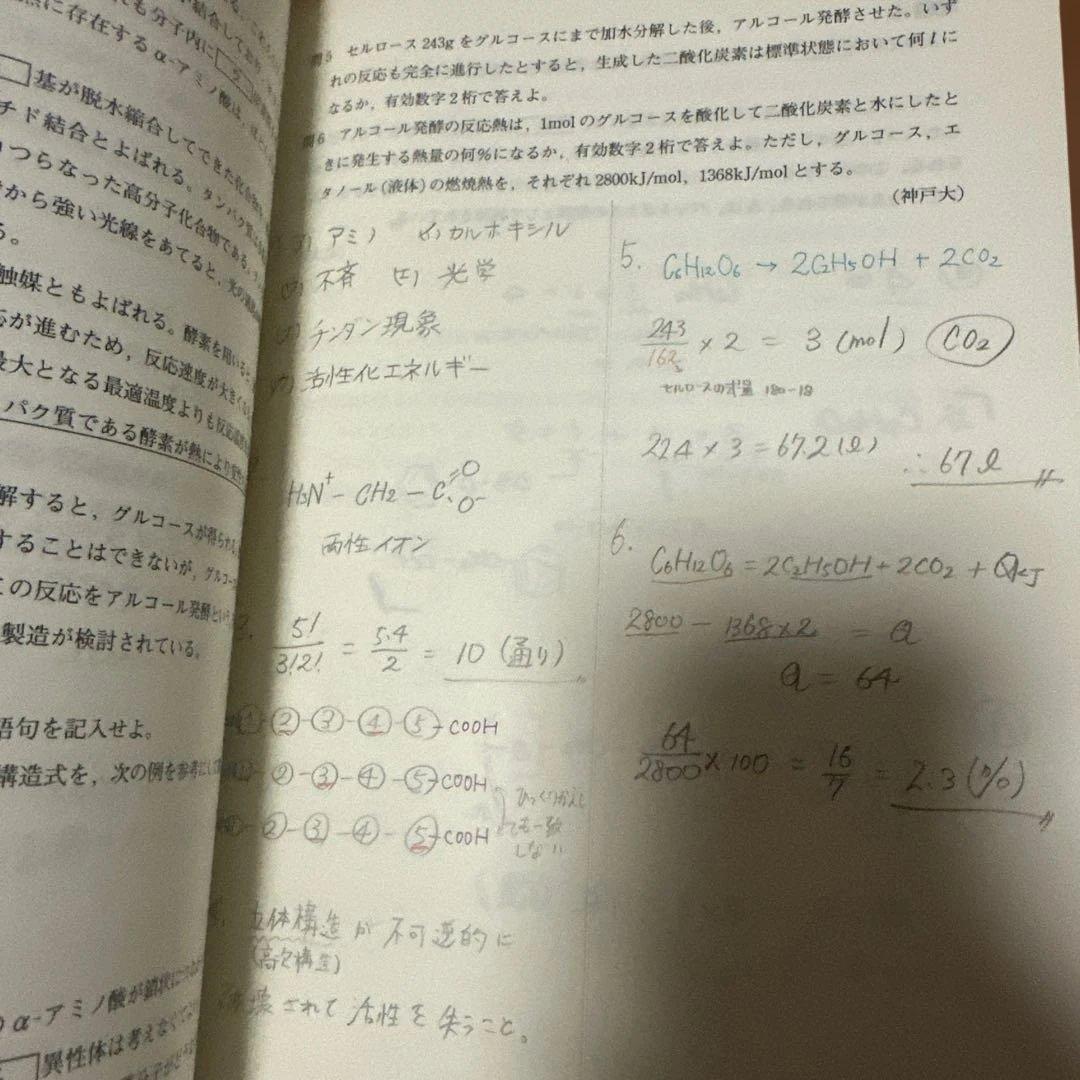 も分子内に
然に存在するα-アミノ酸は,
基が脱水縮合してできた化合物
チド結合とよばれる。タンパク質は
つらなった高分子化合物である。
から強い光線をあてると,光の
る。
触媒ともよばれる。酵素を用いると
応が進むため,反応速度が大きくなる
最大となる最適温度よりも反応温度
パク質である酵素が熱により変性
解すると,グルコースが得られる
することはできないが,グルコー
この反応をアルコール発酵という
製造が検討されている。
語句を記入せよ。
構造式を,次の例を参考にして
α-アミノ酸が鎖状に
異性体は考えなくて
問5 セルロース243gをグルコースにまで加水分解した後,アルコール発酵させた。いず
れの反応も完全に進行したとすると,生成した二酸化炭素は標準状態において何lに
なるか,有効数字2桁で答えよ。
問6 アルコール発酵の反応熱は,1molのグルコースを酸化して二酸化炭素と水にしたと
きに発生する熱量の何%になるか,有効数字2桁で答えよ。ただし,グルコース,エ
タノール(液体)の燃焼熱を,それぞれ2800kJ/mol,1368kJ/molとする。
(神戸大)
アミノ (イ)カルボキシル
不斉 (エ) 光学
チンダン現象
活性化エネルギー
H3N+ - CH2 - C=O O-
両性イオン
5!/3!2! = 5.4/2 = 10 (通り)
① - ② - ③ - ④ - ⑤ - COOH
② - ③ - ④ - ⑤ - COOH
② - ③ - ④ - ⑤ - COOH
ひっくりかえし
ても一致
しない
立体構造が不可逆的に
(高次構造)
壊されて活性を失うこと。
5. C6H12O6 → 2C2H5OH + 2CO2
243/162 × 2 = 3 (mol) CO2
セルロースの式量 180-18
22.4 × 3 = 67.2 (l) ∴ 67 l
6. C6H12O6 = 2C2H5OH + 2CO2 + QkJ
2800 - 1368×2 = Q
Q = 64
64/2800 × 100 = 16/7 = 2.3 (%)